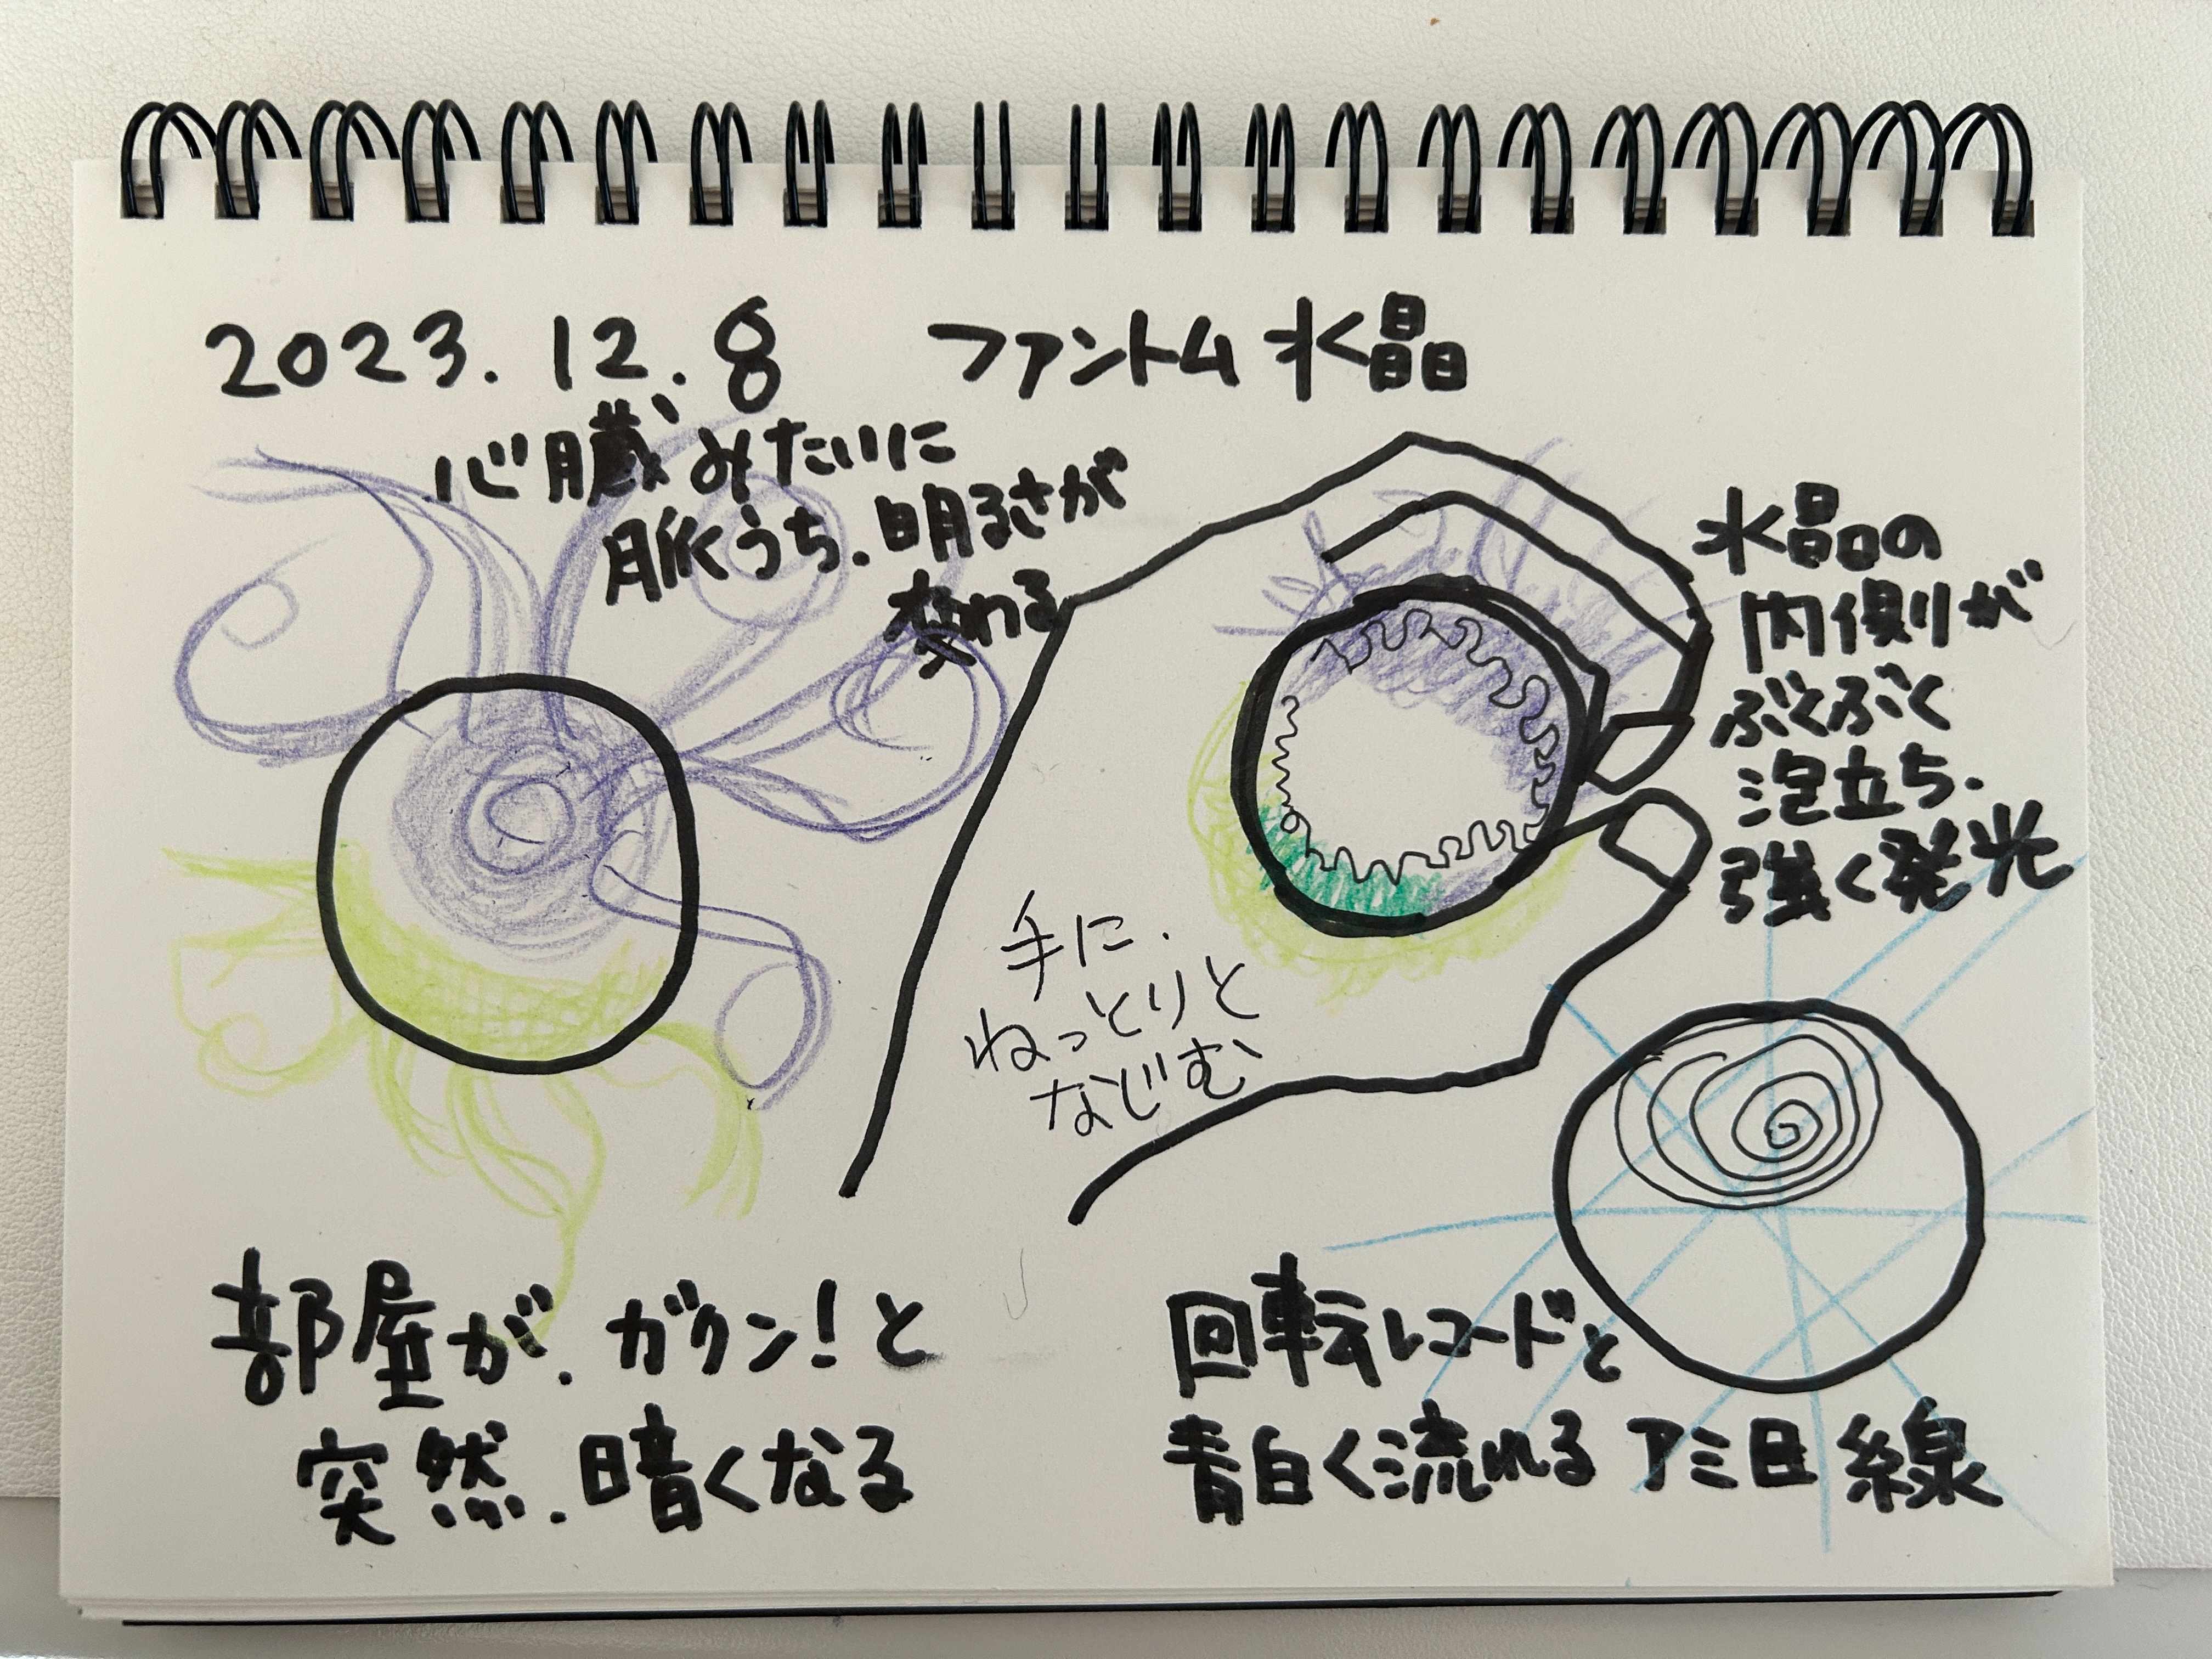 2023.12.8
ファントム水晶
心臓みたいに
脈うち.明るさが
変わる
水晶の
内側が
ぶくぶく
泡立ち.
強く発光
手に.
ねっとりと
なじむ
部屋が.ガクン!と
突然.暗くなる
回転レコードと
青白く流れるアミ目線